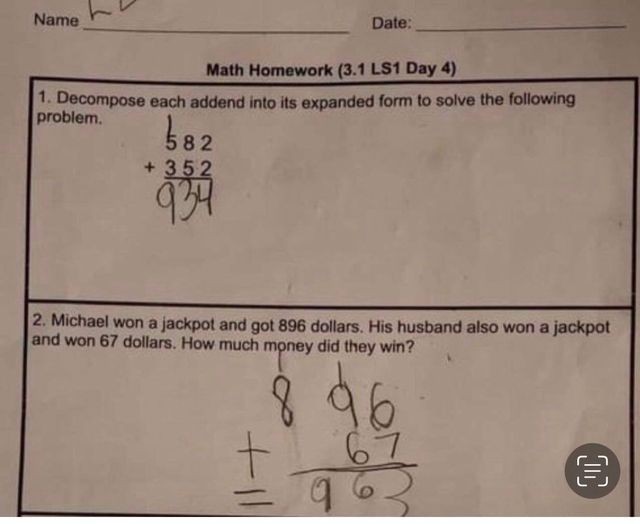 Name Date:
Math Homework (3.1 LS1 Day 4)
1. Decompose each addend into its expanded form to solve the following
problem.
1
582
+ 352
934
2. Michael won a jackpot and got 896 dollars. His husband also won a jackpot
and won 67 dollars. How much money did they win?
1 1
8 96
+ 67
= 963